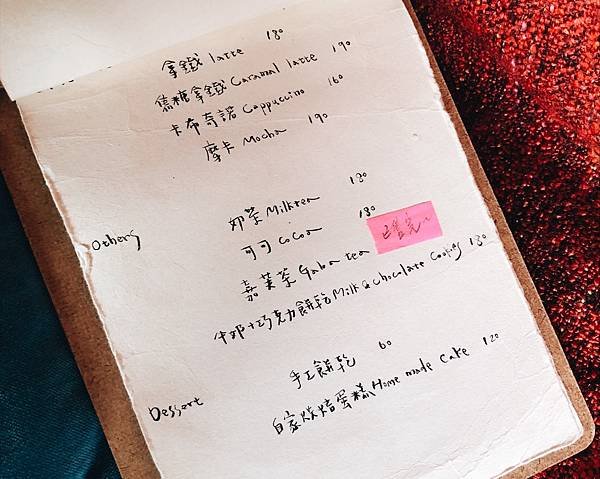 拿鐵 latte 180
焦糖拿鐵 Caramal latte 190
卡布奇諾 Cappuccino 160
摩卡 Mocha 190
Others
奶茶 Milktea 180
可可 cocoa 180
嘉芙茶 Gaba tea 已售完~
牛奶+巧克力餅乾 Milk & chocolate cookies 180
Dessert
手工餅乾 60
自家烘焙蛋糕 Home made cake 120